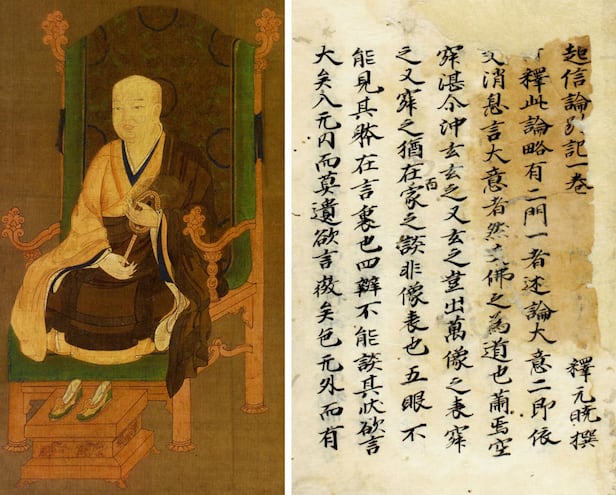 起信論別記一卷
釋元暁撰
釋此論略有二門一者述論大意二即依
文消息言大意者然佛之為道也蕭焉空
寂湛尒沖玄玄之又玄之豈出萬像之表寂
之又寂之猶在百家之談非像表也五眼不
能見其躰在言裏也四辯不能談其状欲言
大矣入无内而莫遺欲言微矣包无外而有